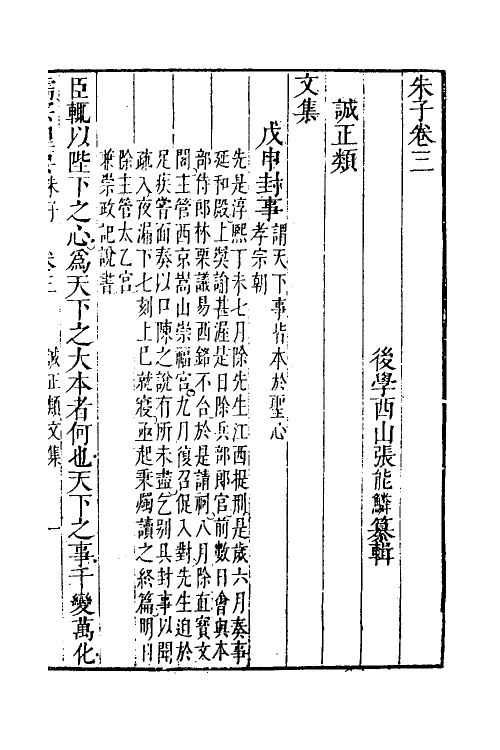 朱子卷三
後學西山張能鱗纂輯
誠正類
文集
戊申封事
謂天下事皆本於聖心
孝宗朝
先是淳熙丁未七月除先生江西提刑是歲六月奏事
延和殿上奬諭甚渥是日除兵部郎官前數日會與本
部侍郎林栗議易西銘不合於是請祠八月除直寶文
閣主管西京嵩山崇福宮九月復召促入對先生迫於
足疾嘗面奏以口陳之說有所未盡乞别具封事以聞
疏入夜漏下七刻上已就寢亟起秉燭讀之終篇明日
除主管太乙宮
兼崇政記說書
臣輒以陛下之心爲天下之大本者何也天下之事千變萬化
卷三 誠正類文集 一